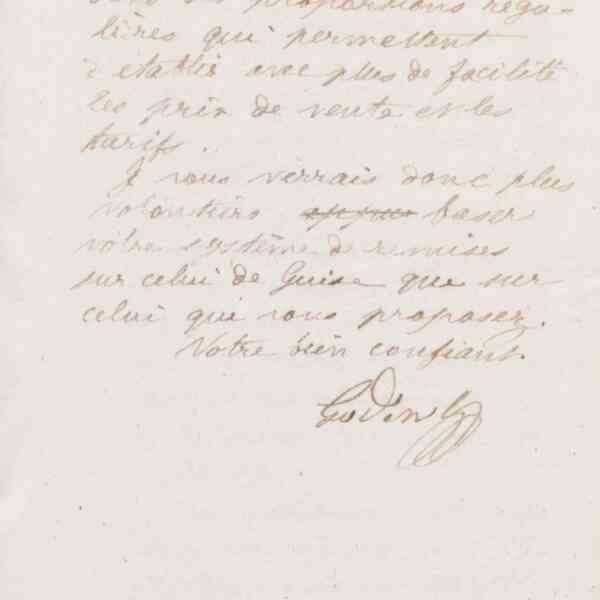 proportions régu-
lières qui permettent
d'établir avec plus de facilité
les prix de vente et les
tarifs.
Je vous verrais donc plus
volontiers baser
votre système de remises
sur celui de Guise que sur
celui que vous proposez.
Votre bien confiant
Godin